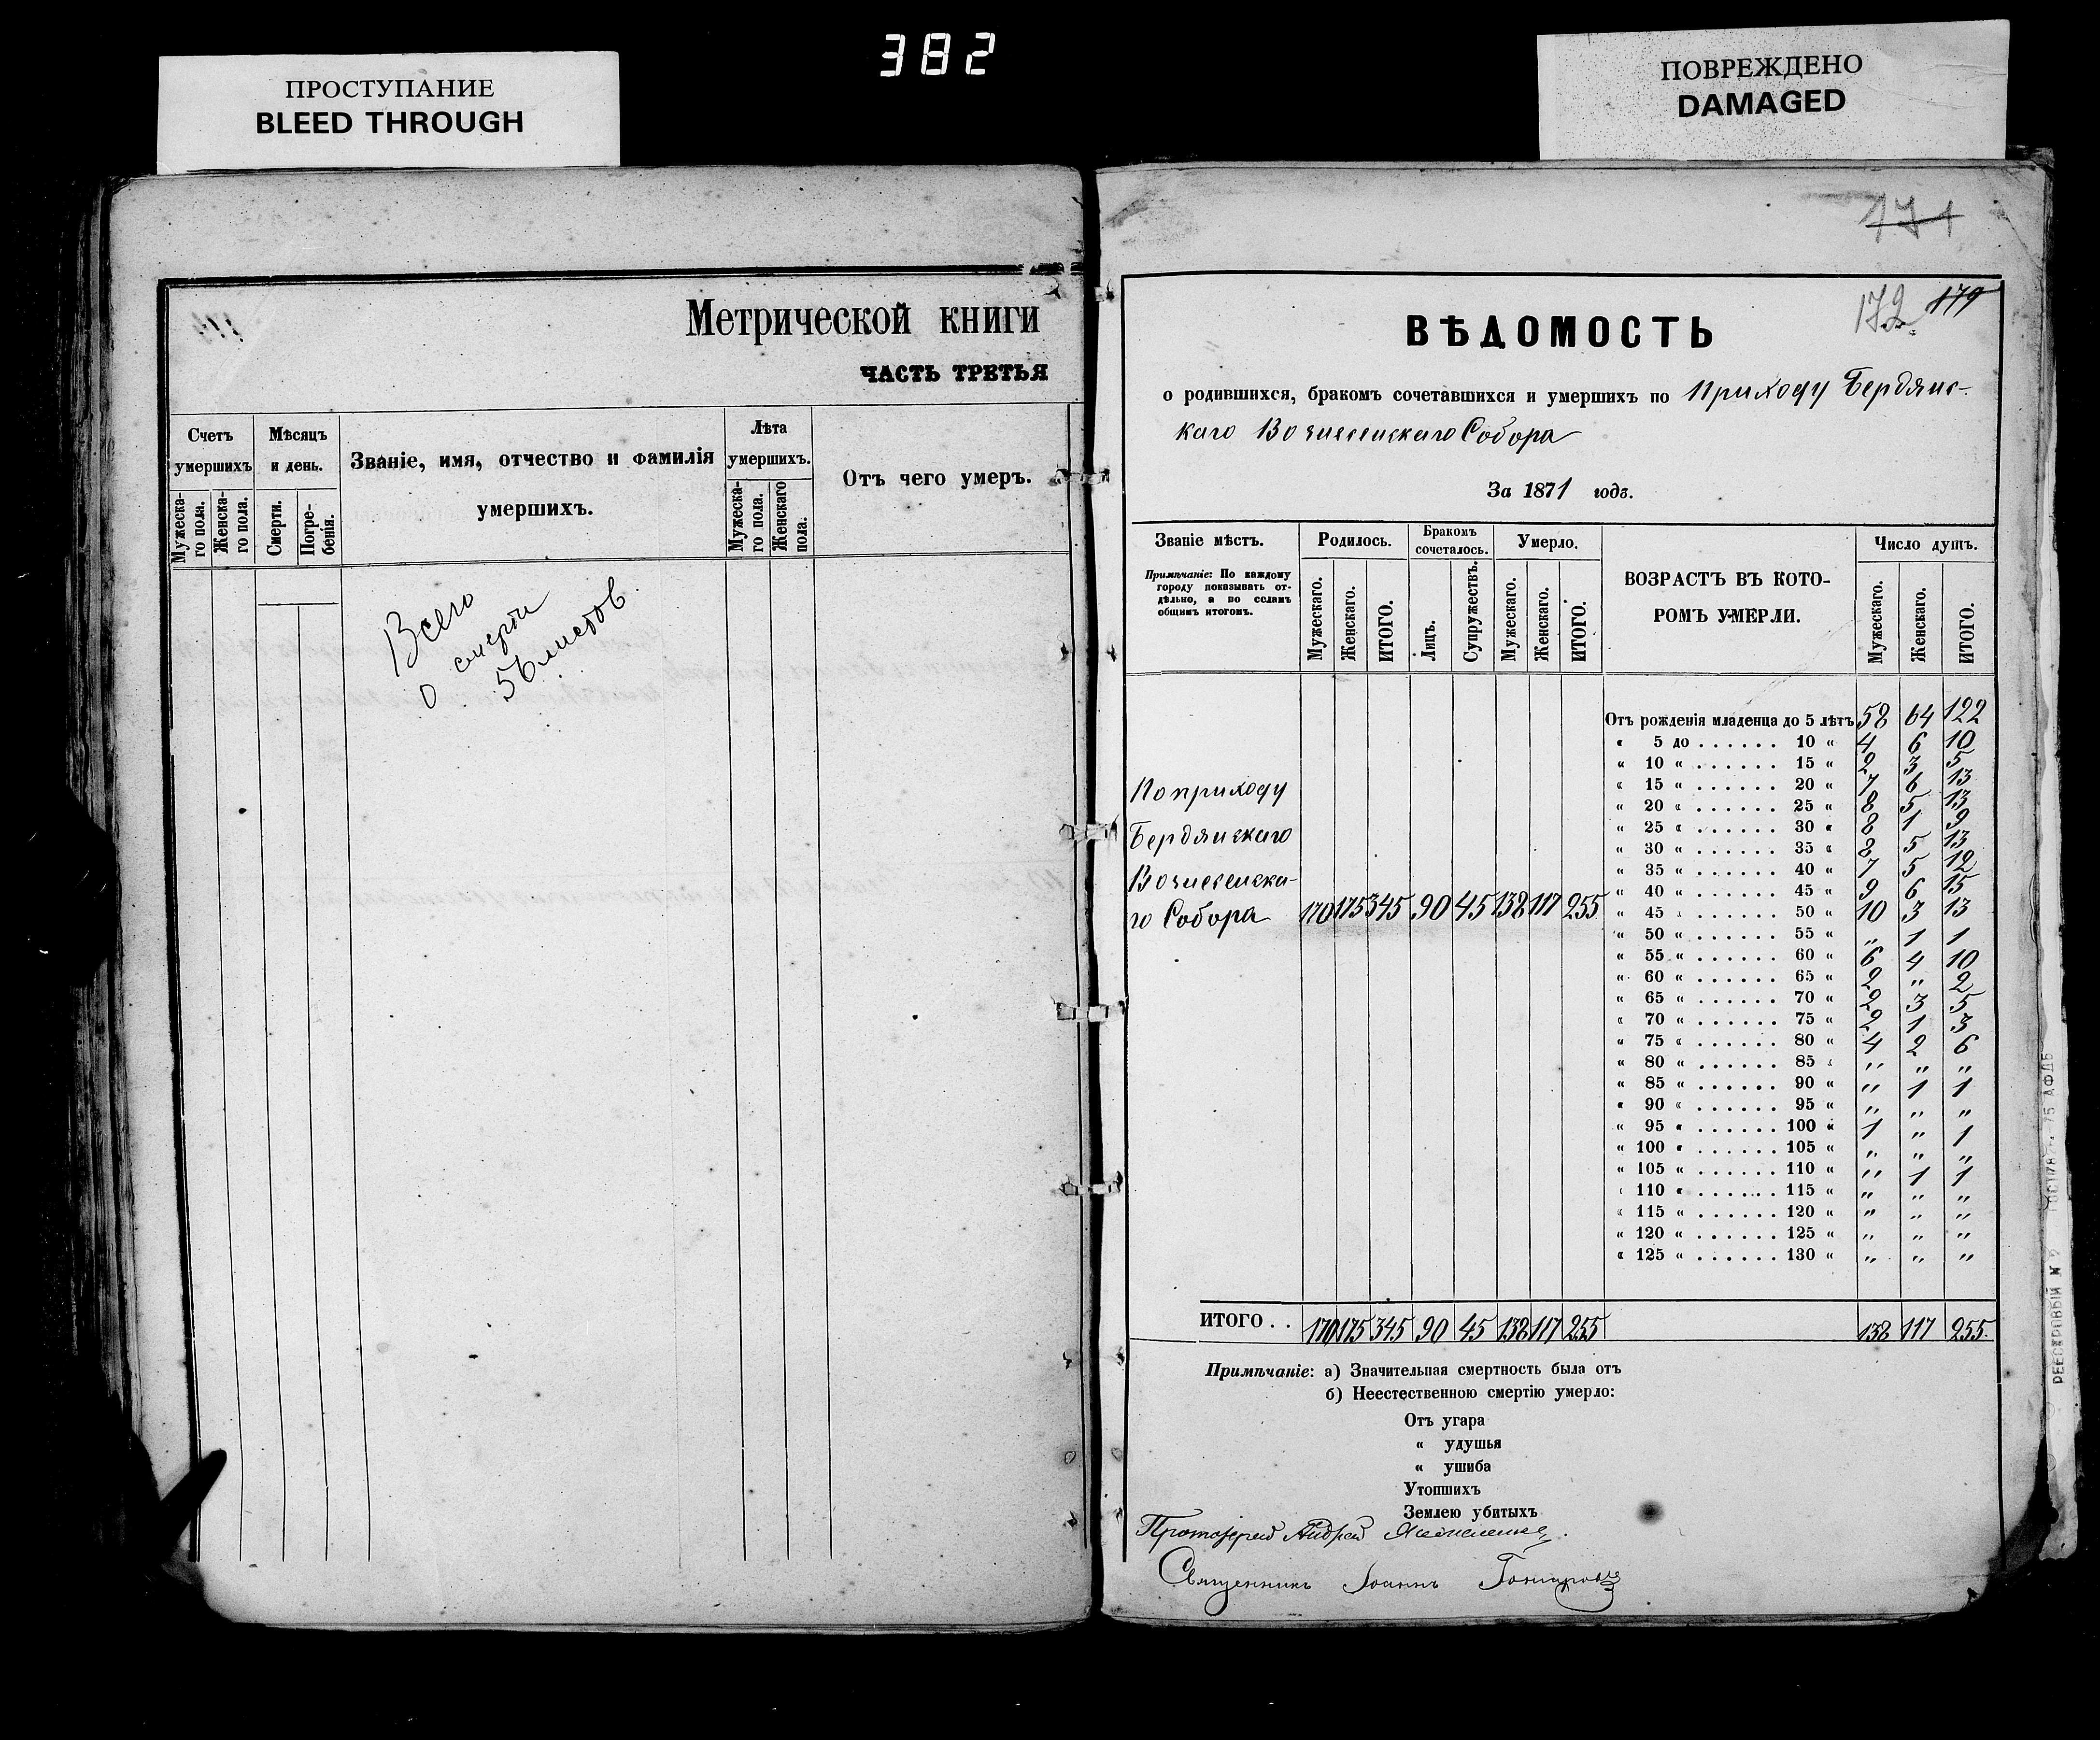 382
ПРОСТУПАНИЕ
BLEED THROUGH
ПОВРЕЖДЕНО
DAMAGED
Метрической книги
ЧАСТЬ ТРЕТЬЯ
Счетъ умершихъ
Мужеска-го пола.
Женска-го пола.
Мѣсяцъ и день.
Смерти.
Погре-бенія.
Званіе, имя, отчество и фамилія
умершихъ.
Лѣта умершихъ.
Мужеска-го пола.
Женскаго пола.
Отъ чего умеръ.
Всего
о смерти
56 листов
171
172 179
ВѢДОМОСТЬ
о родившихся, бракомъ сочетавшихся и умершихъ по приходу Бердянс-
каго Вознесенскаго Собора
За 1871 годъ.
Званіе мѣстъ.
Примѣчаніе: По каждому
городу показывать от-
дѣльно, а по селамъ
общимъ итогомъ.
Родилось.
Мужескаго. Женскаго. ИТОГО.
Бракомъ сочеталось.
Лицъ. Супружествъ.
Умерло.
Мужескаго. Женскаго. ИТОГО.
ВОЗРАСТЪ ВЪ КОТО-
РОМЪ УМЕРЛИ.
Число душъ.
Мужескаго. Женскаго. ИТОГО.
По приходу
Бердянскаго
Вознесенска-
го Собора 170 175 345 90 45 138 117 255
Отъ рожденія младенца до 5 лѣтъ 58 64 122
« 5 до . . . . . . 10 « 4 6 10
« 10 « . . . . . . 15 « 2 3 5
« 15 « . . . . . . 20 « 7 6 13
« 20 « . . . . . . 25 « 8 5 13
« 25 « . . . . . . 30 « 8 1 9
« 30 « . . . . . . 35 « 8 5 13
« 35 « . . . . . . 40 « 7 5 12
« 40 « . . . . . . 45 « 9 6 15
« 45 « . . . . . . 50 « 10 3 13
« 50 « . . . . . . 55 « " 1 1
« 55 « . . . . . . 60 « 6 4 10
« 60 « . . . . . . 65 « 2 " 2
« 65 « . . . . . . 70 « 2 3 5
« 70 « . . . . . . 75 « 2 1 3
« 75 « . . . . . . 80 « 4 2 6
« 80 « . . . . . . 85 « " " "
« 85 « . . . . . . 90 « " 1 1
« 90 « . . . . . . 95 « " " "
« 95 « . . . . . . 100 « 1 " 1
« 100 « . . . . . . 105 « " " "
« 105 « . . . . . . 110 « " 1 1
« 110 « . . . . . . 115 « " " "
« 115 « . . . . . . 120 « " " "
« 120 « . . . . . . 125 « " " "
« 125 « . . . . . . 130 « " " "
ИТОГО . . 170 175 345 90 45 138 117 255 138 117 255.
Примѣчаніе: а) Значительная смертность была отъ
б) Неестественною смертію умерло:
Отъ угара
« удушья
« ушиба
Утопшихъ
Землею убитыхъ
Протоіерей Андрей
Священникъ Іоаннъ Гончаровъ